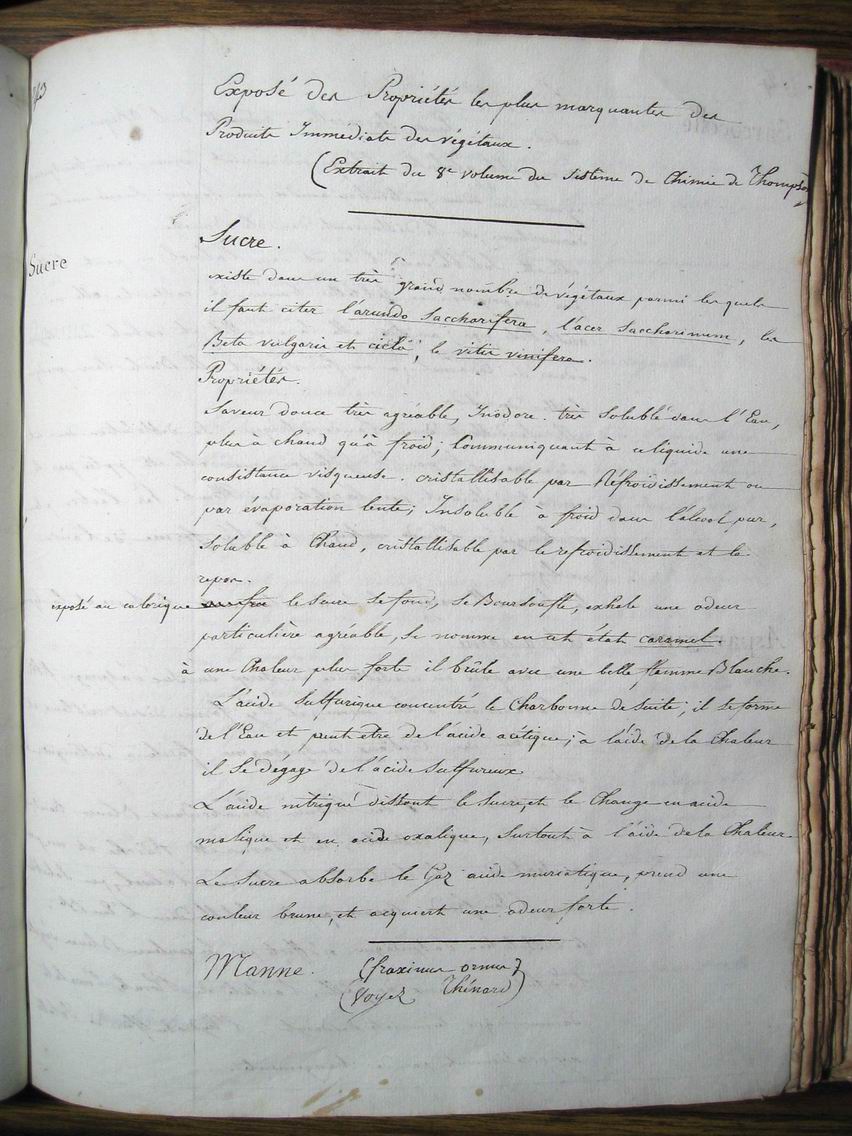 Exposé des Propriétés les plus marquantes des
Produits Immédiats des végétaux.
(Extrait du 8e volume du Sistême de Chimie de Thompson
Sucre.
Sucre
existe dans un très grand nombre de végétaux parmi lesquels
il faut citer l'arundo Saccharifera, l'acer Saccharinum, les
Beta vulgaris et cicla, le vitis vinifera.
Propriétés.
Saveur douce très agréable, Inodore. très soluble dans l'Eau,
plus à chaud qu'à froid; Communiquant à ce liquide une
consistance visqueuse. cristallisable par Réfroidissement ou
par évaporation lente; Insoluble à froid dans l'alcool pur,
Soluble à Chaud, cristallisable par le refroidissement et le
repos.
exposé au calorique le Sucre se fond, se Boursoufle, exhale une odeur
particulière agréable, se nomme en cet état caramel.
à une Chaleur plus forte il brûle avec une belle flamme Blanche.
L'acide Sulfurique concentré le Charbonne de suite; il se forme
de l'Eau et peut etre de l'acide acétique; à l'aide de la Chaleur
il se dégage de l'acide Sulfureux.
L'acide nitrique dissout le Sucre, et le Change en acide
malique et en acide oxalique, Surtout à l'aide de la Chaleur.
Le Sucre absorbe le Gaz acide muriatique, prend une
couleur brune, et acquiert une odeur forte.
Manne. (fraxinus ornus)
(Voyez Thénard)